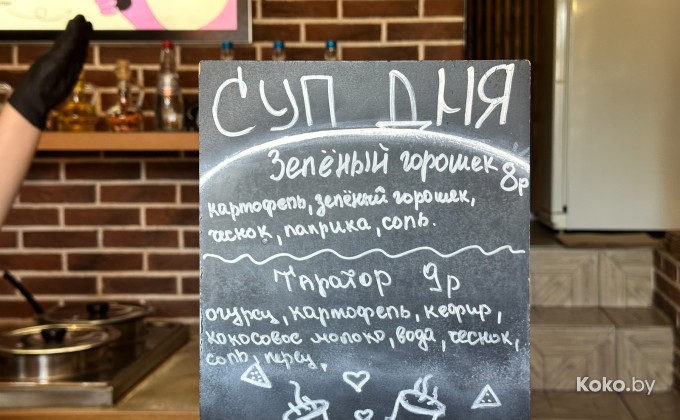 СУП ДНЯ
Зелёный горошек 8р
картофель, зелёный горошек,
чеснок, паприка, соль.
Таратор 9р
огурец, картофель, кефир,
кокосовое молоко, вода, чеснок,
соль, перец,
Koko.by